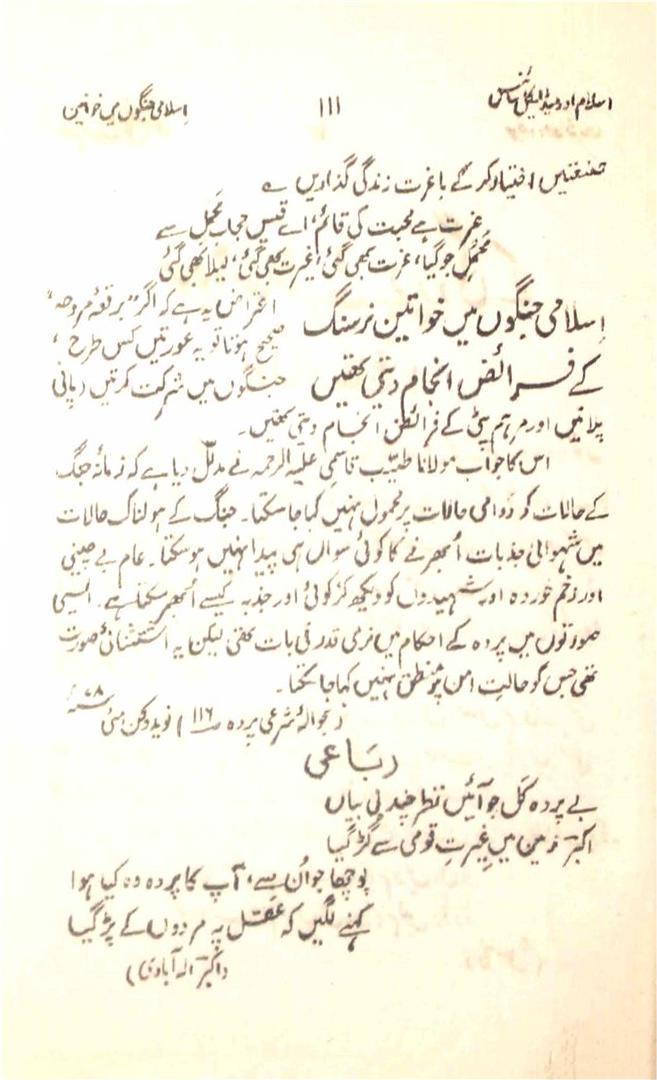 اسلام اور میڈیکل سائنس ۱۱۱ اسلامی جنگوں میں خواتین
صنعتیں اختیار کر کے باغیرت زندگی گذاریں ؎
غیرت ہے محبت کی قائم، اے قیس حجاب محمل سے
مَحمل جو گیا، عزت بھی گئی، غیرت بھی گئی، لیلا بھی گئی
اسلامی جنگوں میں خواتین نرسنگ
کے فرائض انجام دیتی تھیں
اعتراض یہ ہے کہ اگر "برقعہٴ مروجہ"
صحیح ہوتا تو یہ عورتیں کس طرح
جنگوں میں شرکت کرتیں، پانی
پلاتیں اور مرہم پٹی کے فرائض انجام دیتی تھیں۔
اس کا جواب مولانا طیّب قاسمی علیہ الرحمہ نے مدلّل دیا ہے کہ زمانۂ جنگ
کے حالات کو دوامی حالات پر محمول نہیں کیا جا سکتا۔ جنگ کے ہولناک حالات
میں شہوانی جذبات اُبھرنے کا کوئی سوال ہی پیدا نہیں ہو سکتا۔ عام بے چینی
اور زخم خوردہ اور شہیدوں کو دیکھ کر کوئی اور جذبہ کیسے اُبھر سکتا ہے۔ ایسی
صورتوں میں پردہ کے احکام میں نرمی قدرتی بات تھی لیکن یہ استثنائی صورت
تھی جس کو حالتِ امن پر منطبق نہیں کہا جا سکتا۔
(بحوالۂ شرعی پردہ ص ۱۱۶) نوید دکن مئی ۷۸ء
رباعی
بے پردہ کل جو آئیں نظر چند بی بیاں
اکبر زمین میں غیرتِ قومی سے گڑ گیا
پوچھا جو اُن سے، آپ کا پردہ وہ کیا ہوا
کہنے لگیں کہ عقل پہ مردوں کے پڑ گیا
(اکبر الہ آبادی)